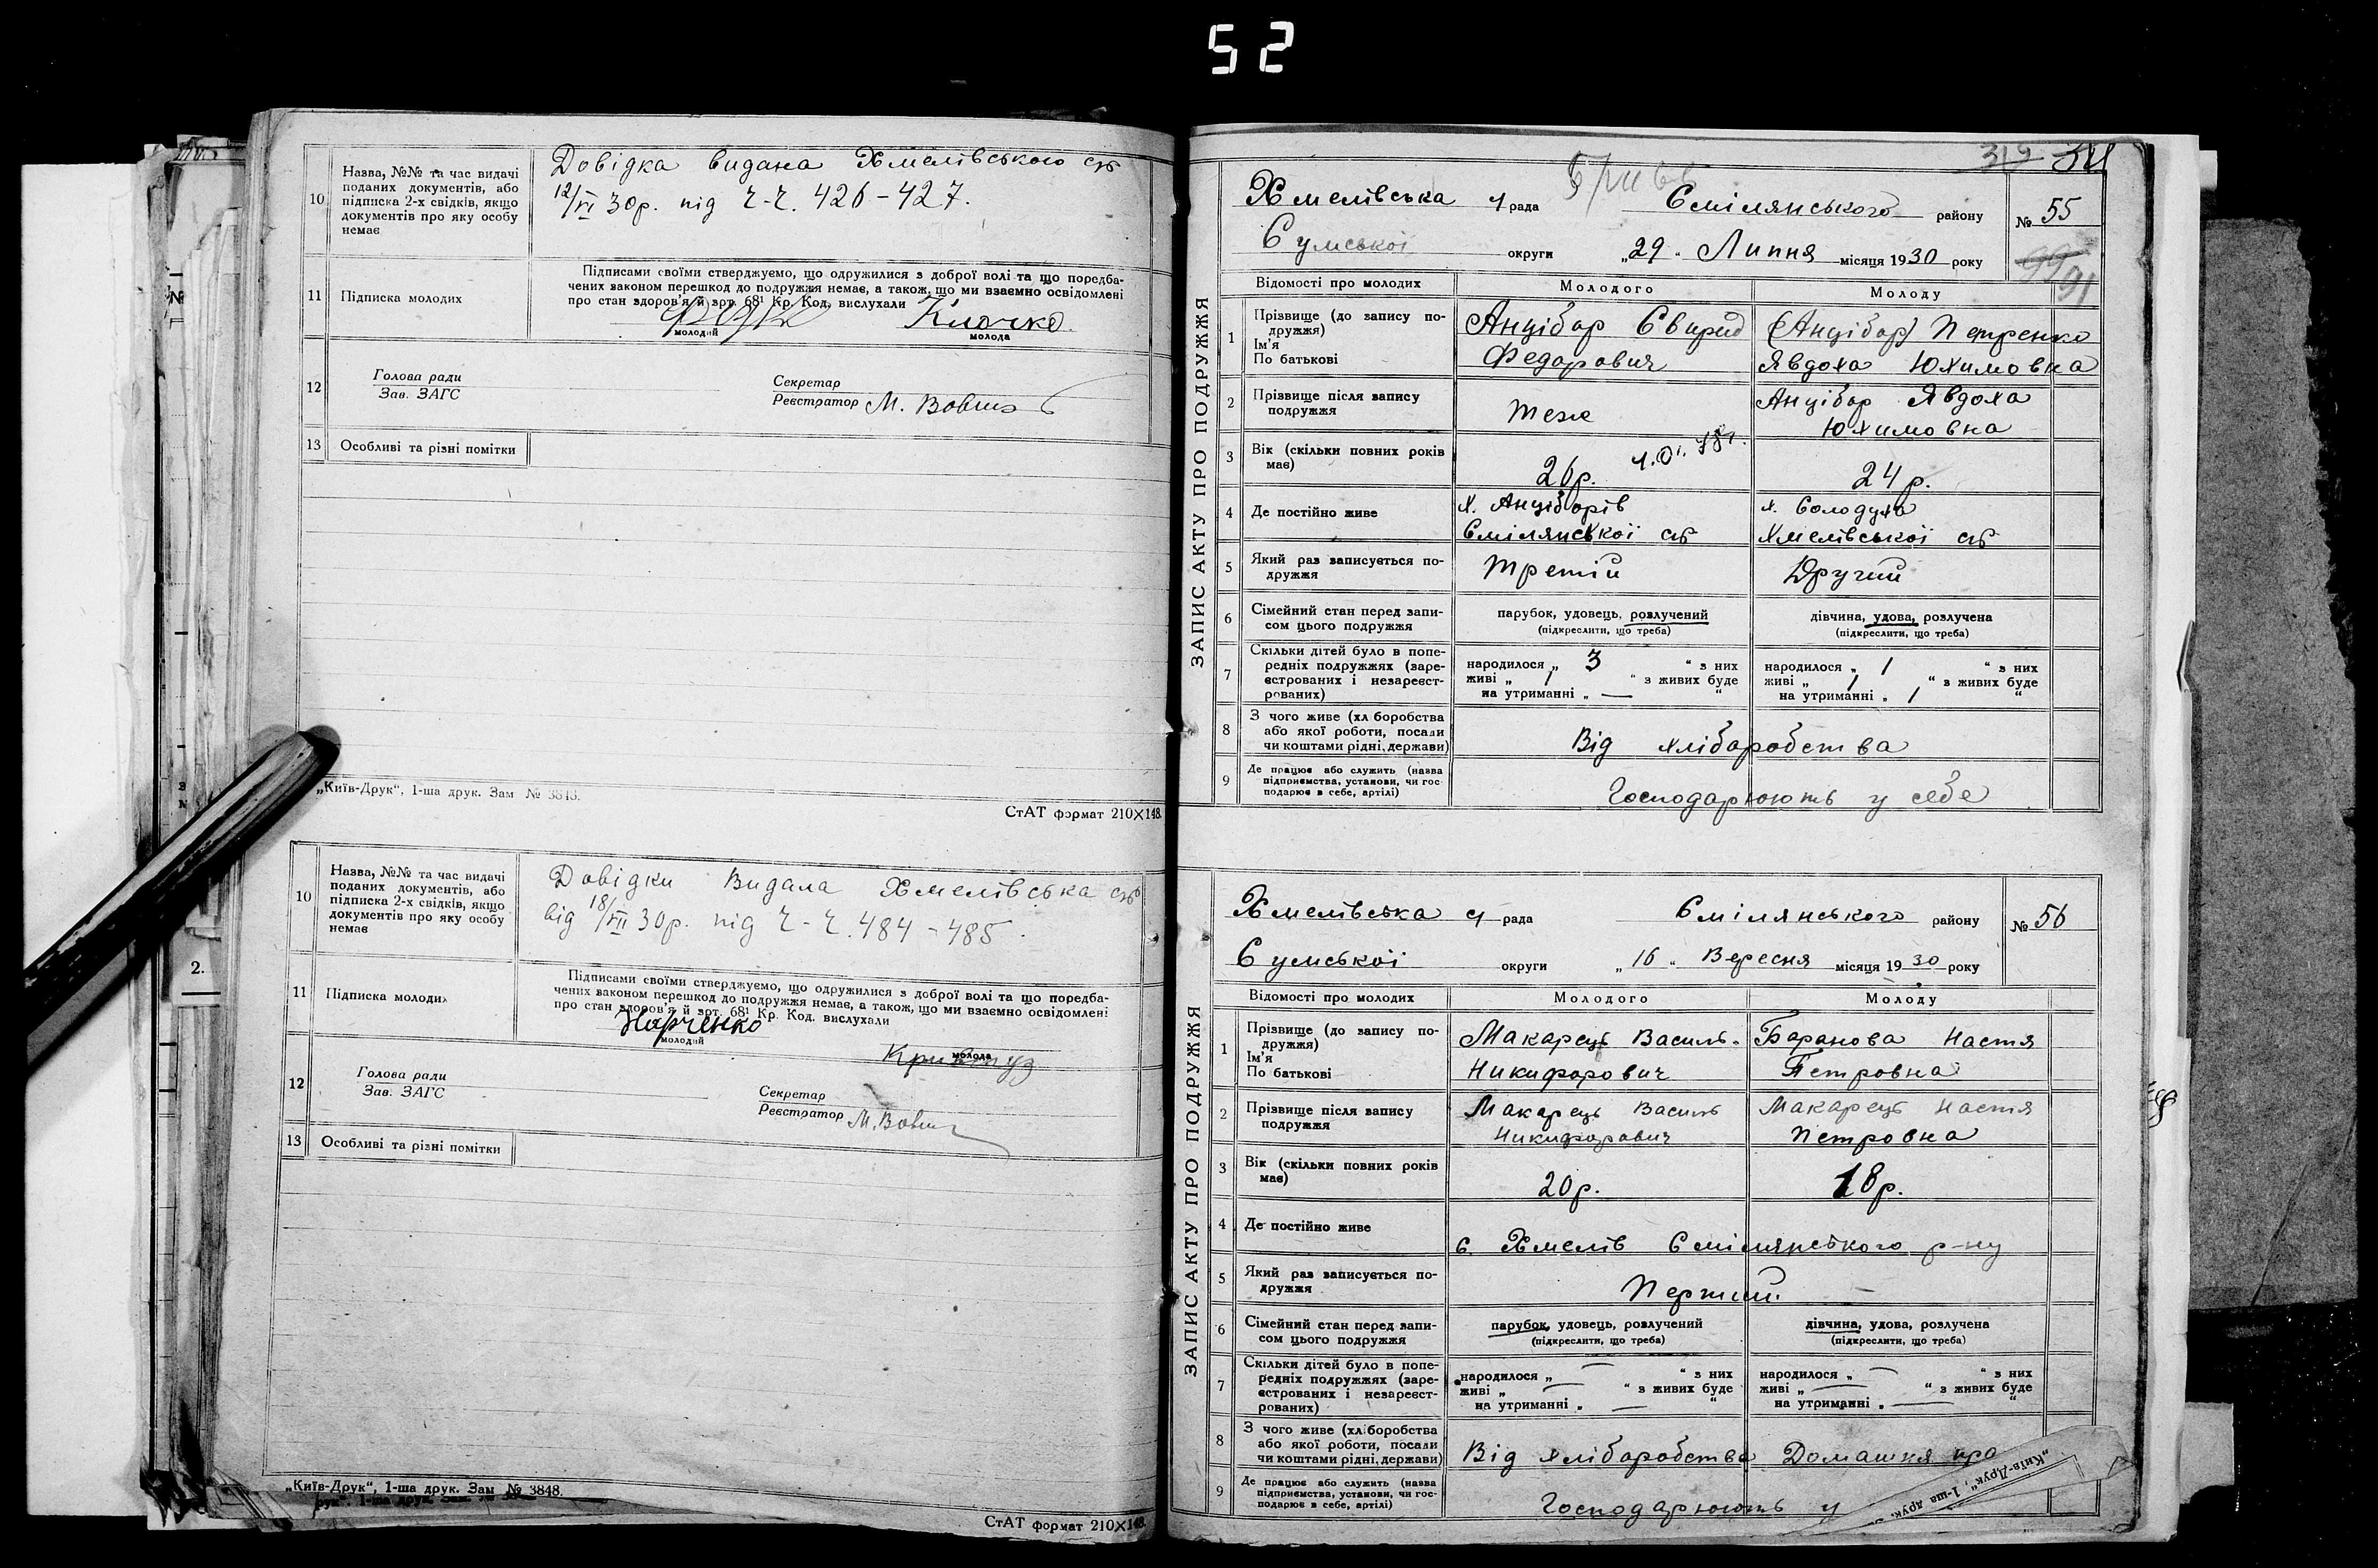 52
10 Назва, №№ та час видачі
поданих документів, або
підписка 2-х свідків, якщо
документів про яку особу
немає
Довідка видана Хмелівською с/р
12/VI 30р. під ч-ч. 426-427.
11 Підписка молодих
Підписами своїми стверджуємо, що одружилися з доброї волі та що поредба-
чених законом перешкод до подружжя немає, а також, що ми взаємно освідомлені
про стан здоров'я й арт. 68¹ Кр. Код. вислухали
Клочко
молодий
молода
12 Голова ради
Зав. ЗАГС
Секретар
Реєстратор М.
13 Особливі та різні помітки
„Київ-Друк“, 1-ша друк. Зам № 3848.
СтАТ формат 210×148.
10 Назва, №№ та час видачі
поданих документів, або
підписка 2-х свідків, якщо
документів про яку особу
немає
Довідки Видала Хмелівська с/р
від 18/VII 30р. під ч-ч. 484-485.
11 Підписка молодих
Підписами своїми стверджуємо, що одружилися з доброї волі та що поредба-
чених законом перешкод до подружжя немає, а також, що ми взаємно освідомлені
про стан здоров'я й арт. 68¹ Кр. Код. вислухали
молодий
молода
12 Голова ради
Зав. ЗАГС
Секретар
Реєстратор М.
13 Особливі та різні помітки
„Київ-Друк“, 1-ша друк. Зам № 3848.
СтАТ формат 210×148.
2.
319
ЗАПИС АКТУ ПРО ПОДРУЖЖЯ
Хмелівська с/рада Смілянського району № 55
Сумської округи „29“ Липня місяця 1930 року
99 91
Відомості про молодих Молодого Молоду
1 Прізвище (до запису по-
дружжя)
Ім'я
По батькові
Анцібор Свирид
Федорович
(Анцібор) Петренко
Явдоха Юхимовна
2 Прізвище після запису
подружжя
теж
Анцібор Явдоха
Юхимовна
3 Вік (скільки повних років
має)
26р.
24р.
4 Де постійно живе
х. Анціборів
Смілянської с/р
х. Солодуха
Хмелівської с/р
5 Який раз записується по-
дружжя
Третій
Другий
6 Сімейний стан перед запи-
сом цього подружжя
парубок, удовець, розлучений
(підкреслити, що треба)
дівчина, удова, розлучена
(підкреслити, що треба)
7 Скільки дітей було в попе-
редніх подружжях (заре-
єстрованих і незареєст-
рованих)
народилося „ 3 “ з них
живі „ 1 “ з живих буде
на утриманні „ — “
народилося „ 1 “ з них
живі „ 1 “ з живих буде
на утриманні „ 1 “
8 З чого живе (хліборобства
або якої роботи, посади
чи коштами рідні, держави)
Від хліборобства
9 Де працює або служить (назва
підприємства, установи, чи гос-
подарює в себе, артілі)
Господарюють у себе
ЗАПИС АКТУ ПРО ПОДРУЖЖЯ
Хмелівська с/рада Смілянського району № 56
Сумської округи „16“ Вересня місяця 1930 року
Відомості про молодих Молодого Молоду
1 Прізвище (до запису по-
дружжя)
Ім'я
По батькові
Макарець Василь
Никифорович
Баранова Настя
Петровна
2 Прізвище після запису
подружжя
Макарець Василь
Никифорович
Макарець Настя
Петровна
3 Вік (скільки повних років
має)
20р.
18р.
4 Де постійно живе
с. Хмелів Смілянського р-ну
5 Який раз записується по-
дружжя
Перший
6 Сімейний стан перед запи-
сом цього подружжя
парубок, удовець, розлучений
(підкреслити, що треба)
дівчина, удова, розлучена
(підкреслити, що треба)
7 Скільки дітей було в попе-
редніх подружжях (заре-
єстрованих і незареєст-
рованих)
народилося „ — “ з них
живі „ — “ з живих буде
на утриманні „ — “
народилося „ — “ з них
живі „ — “ з живих буде
на утриманні „ — “
8 З чого живе (хліборобства
або якої роботи, посади
чи коштами рідні, держави)
Від хліборобства
Домашня пра
9 Де працює або служить (назва
підприємства, установи, чи гос-
подарює в себе, артілі)
Господарюють у
„Київ-Друк“, 1-ша друк.